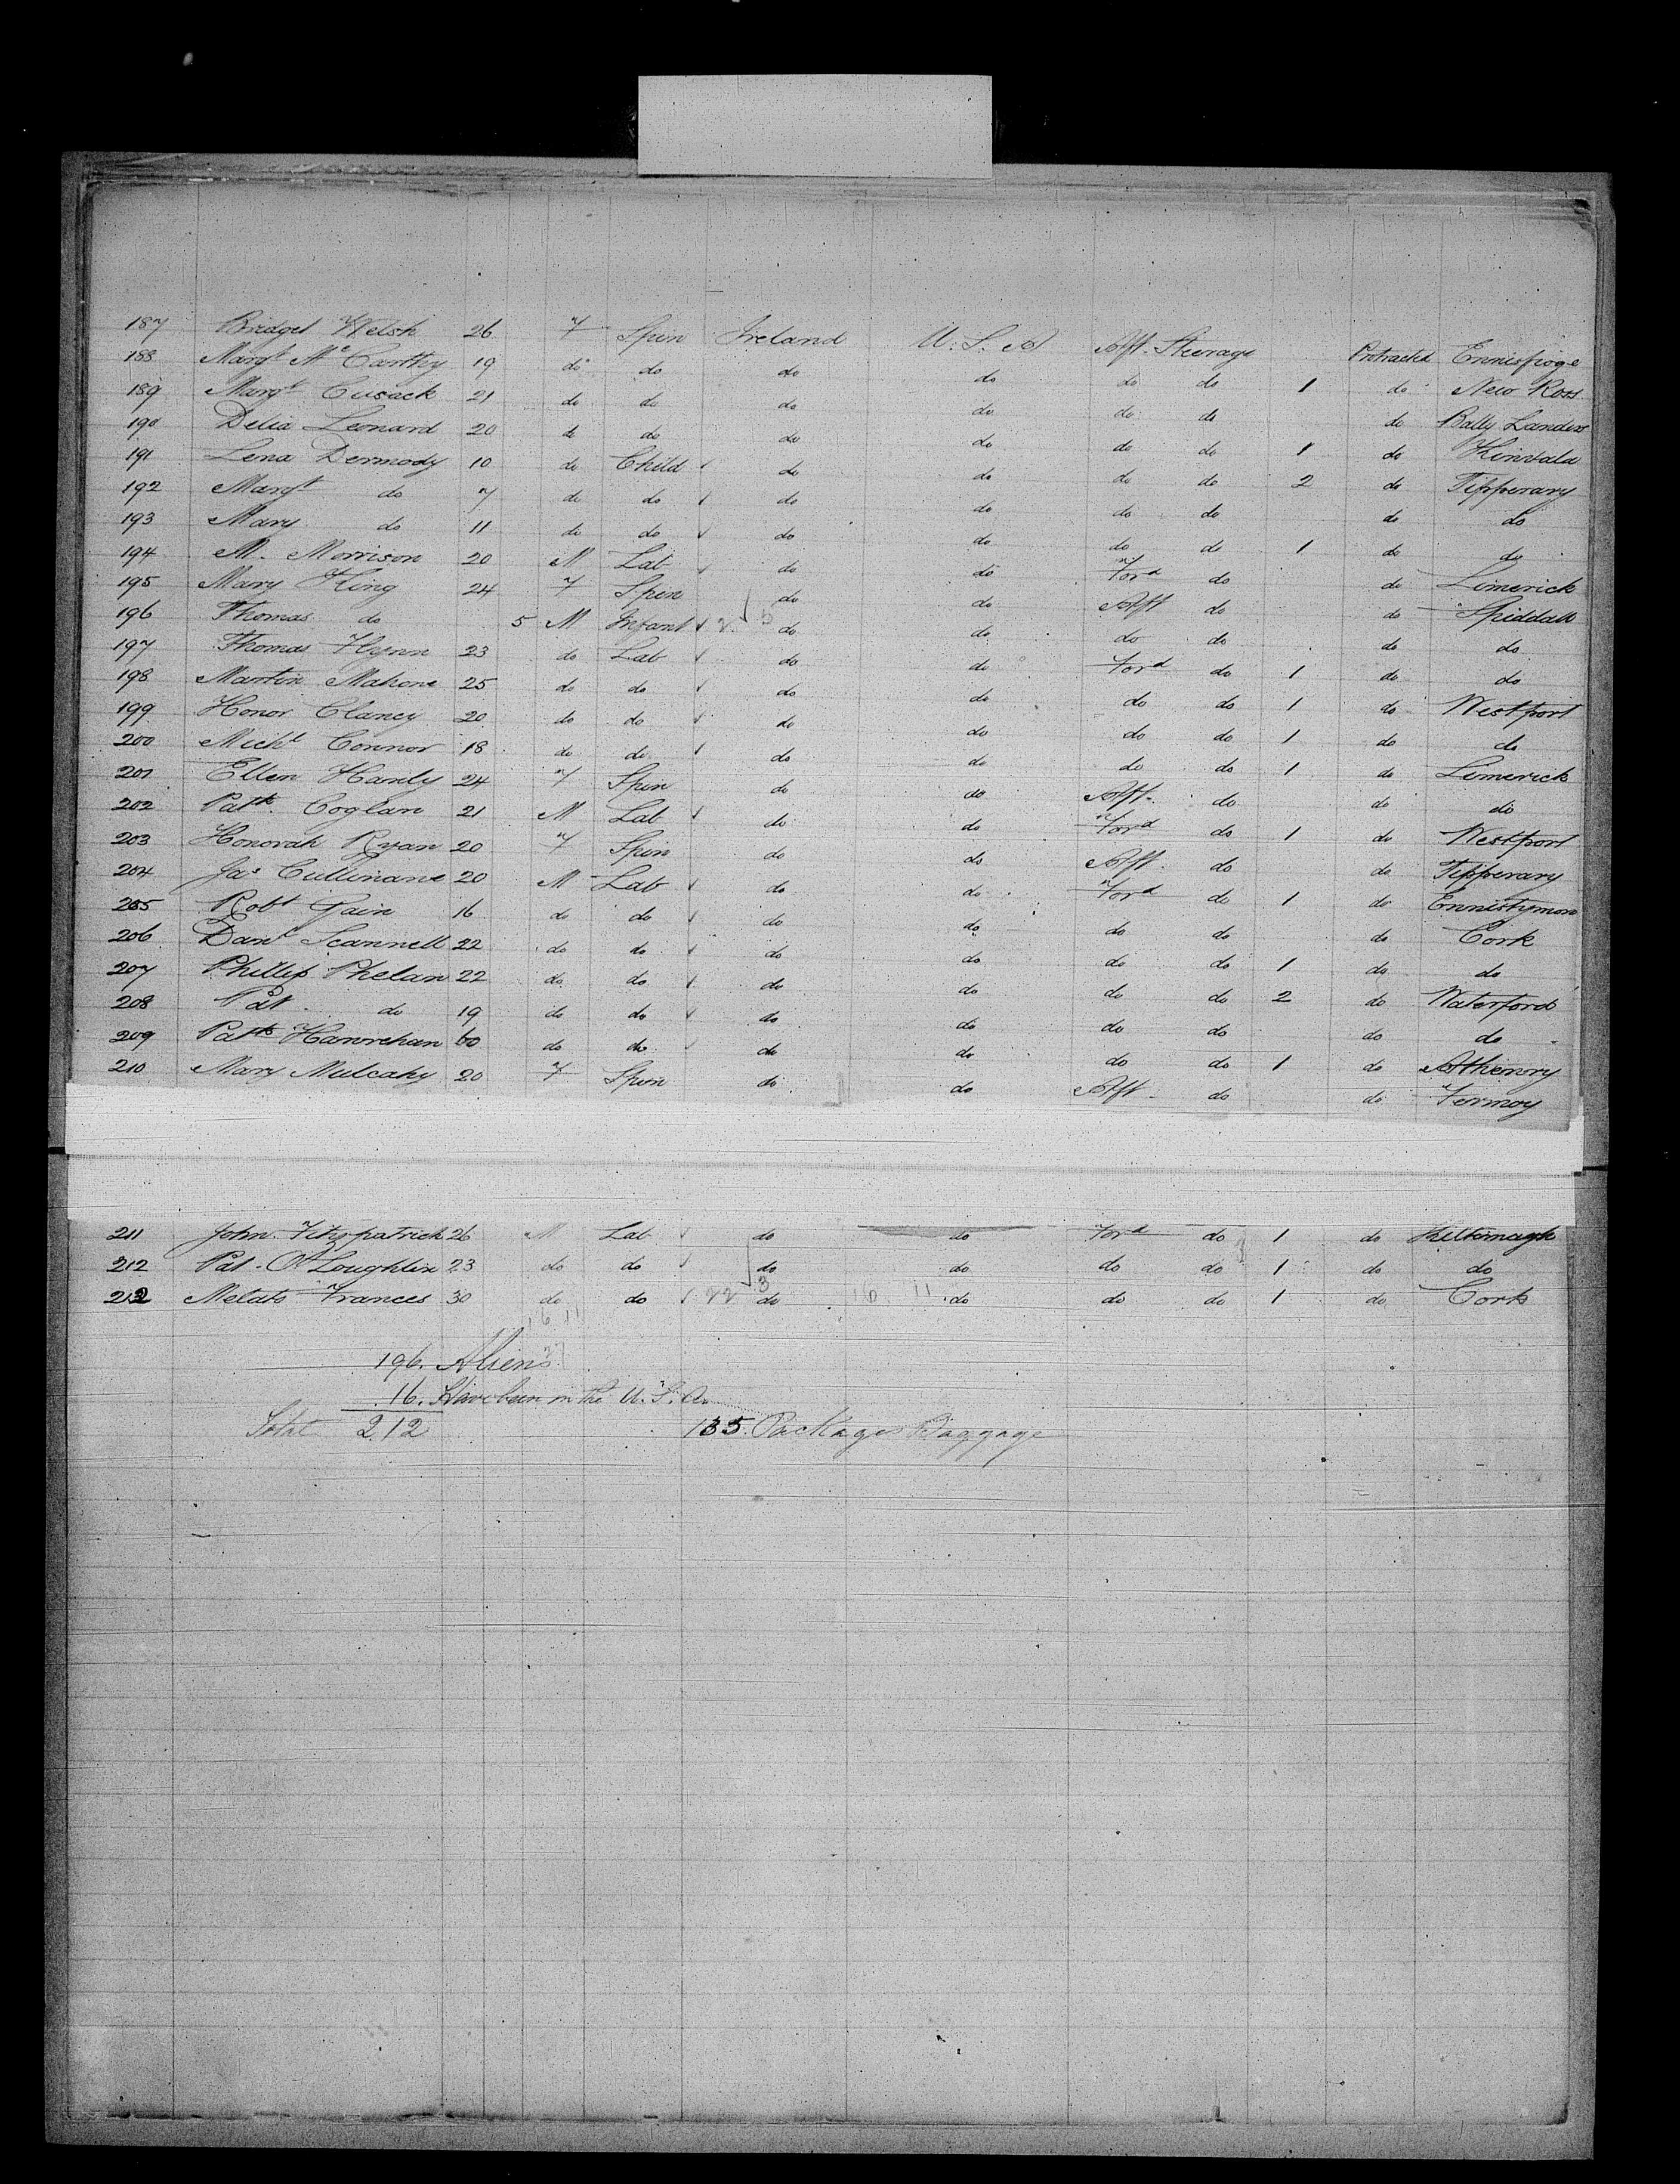 187 Bridget Welsh 26 F Spin Ireland U.S.A Aft. Steerage Protracted Ennisfroge
188 Margt McCarthy 19 do do do do do do 1 do New Ross
189 Margt Cusack 21 do do do do do do do Bally Landers
190 Delia Leonard 20 do do do do do do 1 do Kinvala
191 Lena Dermody 10 do Child do do do do 2 do Tipperary
192 Margt do 7 do do do do do do do do
193 Mary do 11 do do do do do do 1 do do
194 M. Morrison 20 M Lab do do Ford do do Limerick
195 Mary King 24 F Spin do do Aft do do Spiddall
196 Thomas do 5 M Infant do do do do do do
197 Thomas Flynn 23 do Lab do do Ford do 1 do do
198 Martin Mahone 25 do do do do do do 1 do Westport
199 Honor Clancy 20 do do do do do do 1 do do
200 Michl Connor 18 do do do do do do 1 do Limerick
201 Ellen Hanly 24 F Spin do do Aft. do do do
202 Patk Coglan 21 M Lab do do Ford do 1 do Westport
203 Honorah Ryan 20 F Spin do do Aft. do do Tipperary
204 Jas Cullinane 20 M Lab do do Ford do 1 do Ennistymon
205 Robt Gain 16 do do do do do do do Cork
206 Danl Scannell 22 do do do do do do 1 do do
207 Phillip Phelan 22 do do do do do do 2 do Waterford
208 Pat. do 19 do do do do do do do do
209 Patk Hanrehan 60 do do do do do do 1 do Athenry
210 Mary Mulcahy 20 F Spin do do Aft. do do Fermoy
211 John Fitzpatrick 26 M Lab do do Ford do 1 do Kiltimagh
212 Pat. O'Loughlin 23 do do do do do do 1 do do
212 Metats Frances 30 do do do do do do 1 do Cork
196. Aliens
16. Have been in the U.S.A.
Total 212 135. Packages Baggage